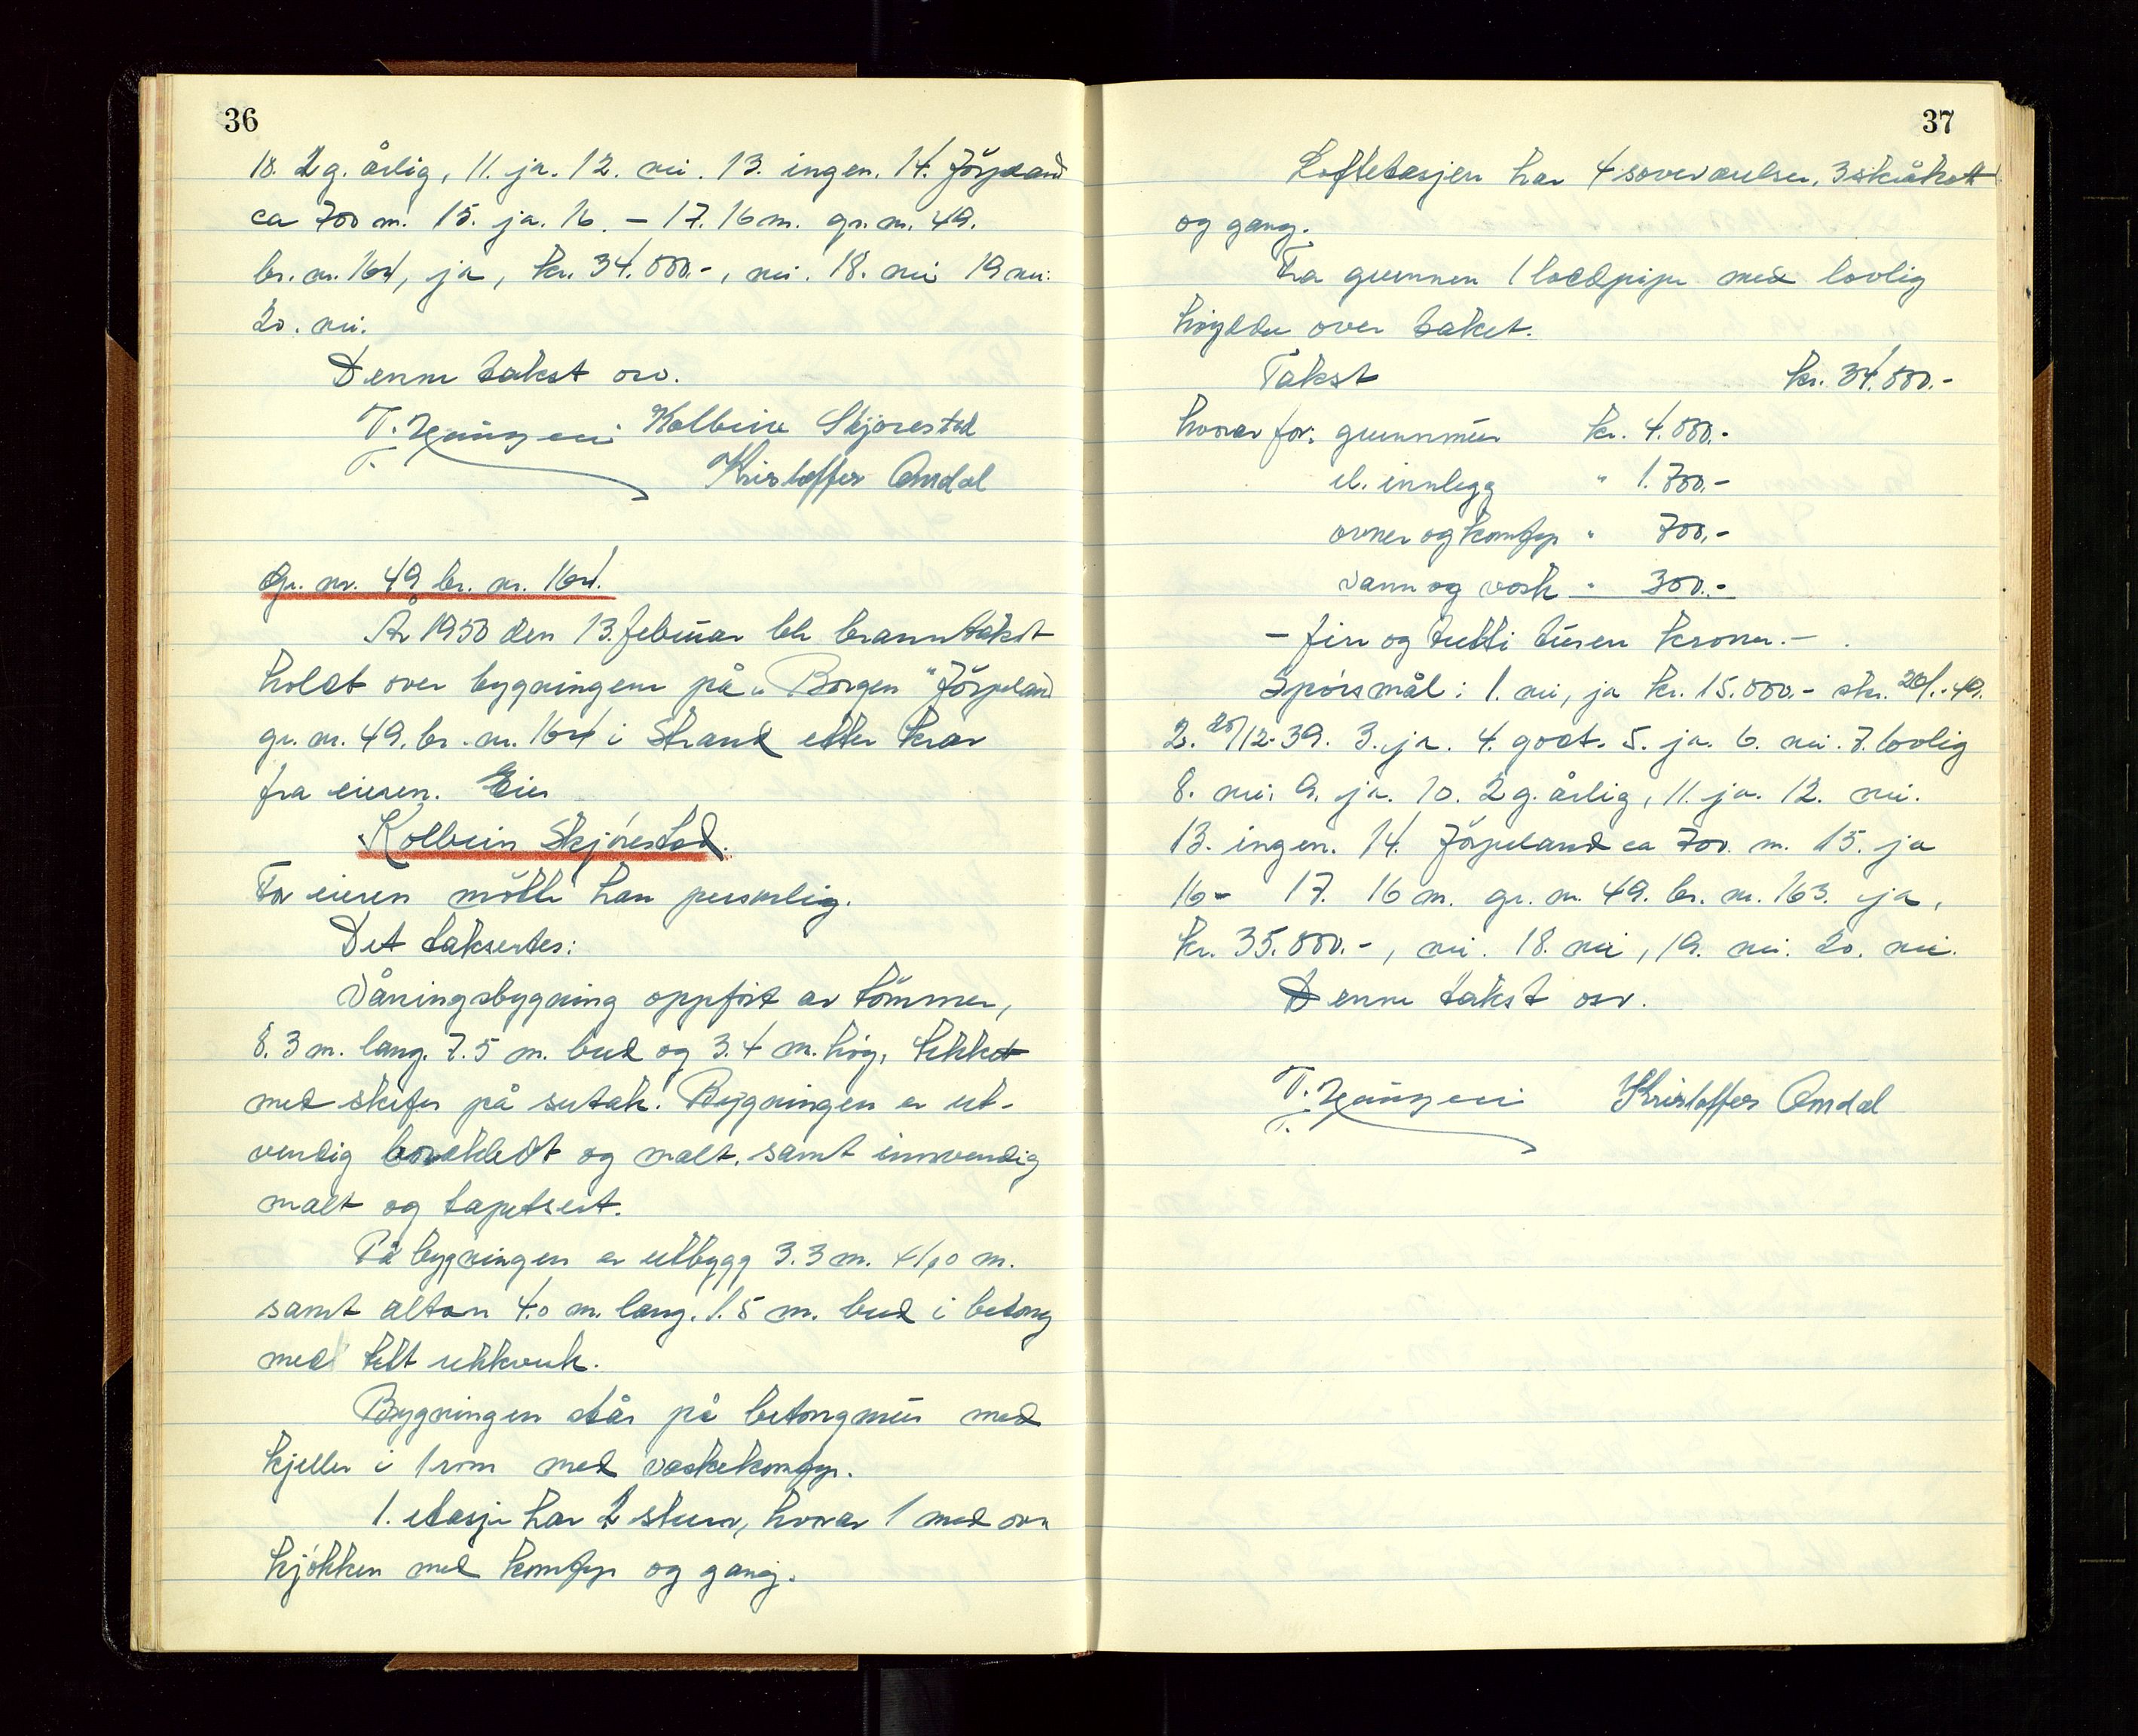 36
10. 2 g. årlig, 11. ja. 12. nei. 13. ingen. 14. Jörpeland
ca 700 m. 15. ja. 16. – 17. 16 m. gr. nr. 49.
br. nr. 164, ja, kr. 34.000.-, nei. 18. nei 19 nei.
20. nei.
Denne takst osv.
Kolbein Skjørestad
Kristoffer Omdal
Gr. nr. 49 br. nr. 164.
År 1950 den 13. februar ble branntakst
holdt over bygningene på „Borgen" Jörpeland
gr. nr. 49. br. nr. 164 i Strand etter krav
fra eieren. Eier
Kolbein Skjørestad.
For eieren møtte han personlig.
Det taksertes:
Våningsbygning oppført av tömmer,
8.3 m. lang. 7.5 m. bred og 3.4 m. høg, tekket
med skifer på sutak. Bygningen er ut-
vendig bordkledt og malt, samt innvendig
malt og tapetsert.
På bygningen er utbygg 3.3 m. × 1,0 m.
samt altan 4.0 m. lang. 1.5 m. bred i betong
med tett rekkverk.
Bygningen står på betongmur med
kjeller i 1 rom med vaskekomfyr.
1. etasje har 2 stuer, hvorav 1 med ovn
kjøkken med komfyr og gang.
37
Loftetasjen har 4 soveværelser, 3 skråkott
og gang.
Fra grunnen 1 loddpipe med lovlig
høydde over taket.
Takst kr. 34.000.-
hvorav for: grunnmur kr. 4.000.-
el. innlegg " 1.700.-
ovner og komfyr " 700.-
vann og vask " 300.-
– fire og tretti tusen kroner.-
Spørsmål: 1. nei, ja kr. 15.000.- skr. 20/1.-49.
2. 20/12-39. 3. ja. 4. godt. 5. ja. 6. nei. 7. lovlig
8. nei. 9. ja. 10. 2 g. årlig, 11. ja. 12. nei.
13. ingen. 14. Jörpeland ca 700. m. 15. ja
16 – 17. 16 m. gr. nr. 49. br. nr. 163. ja,
kr. 35.000.-, nei. 18. nei, 19. nei. 20. nei.
Denne takst osv.
Kristoffer Omdal